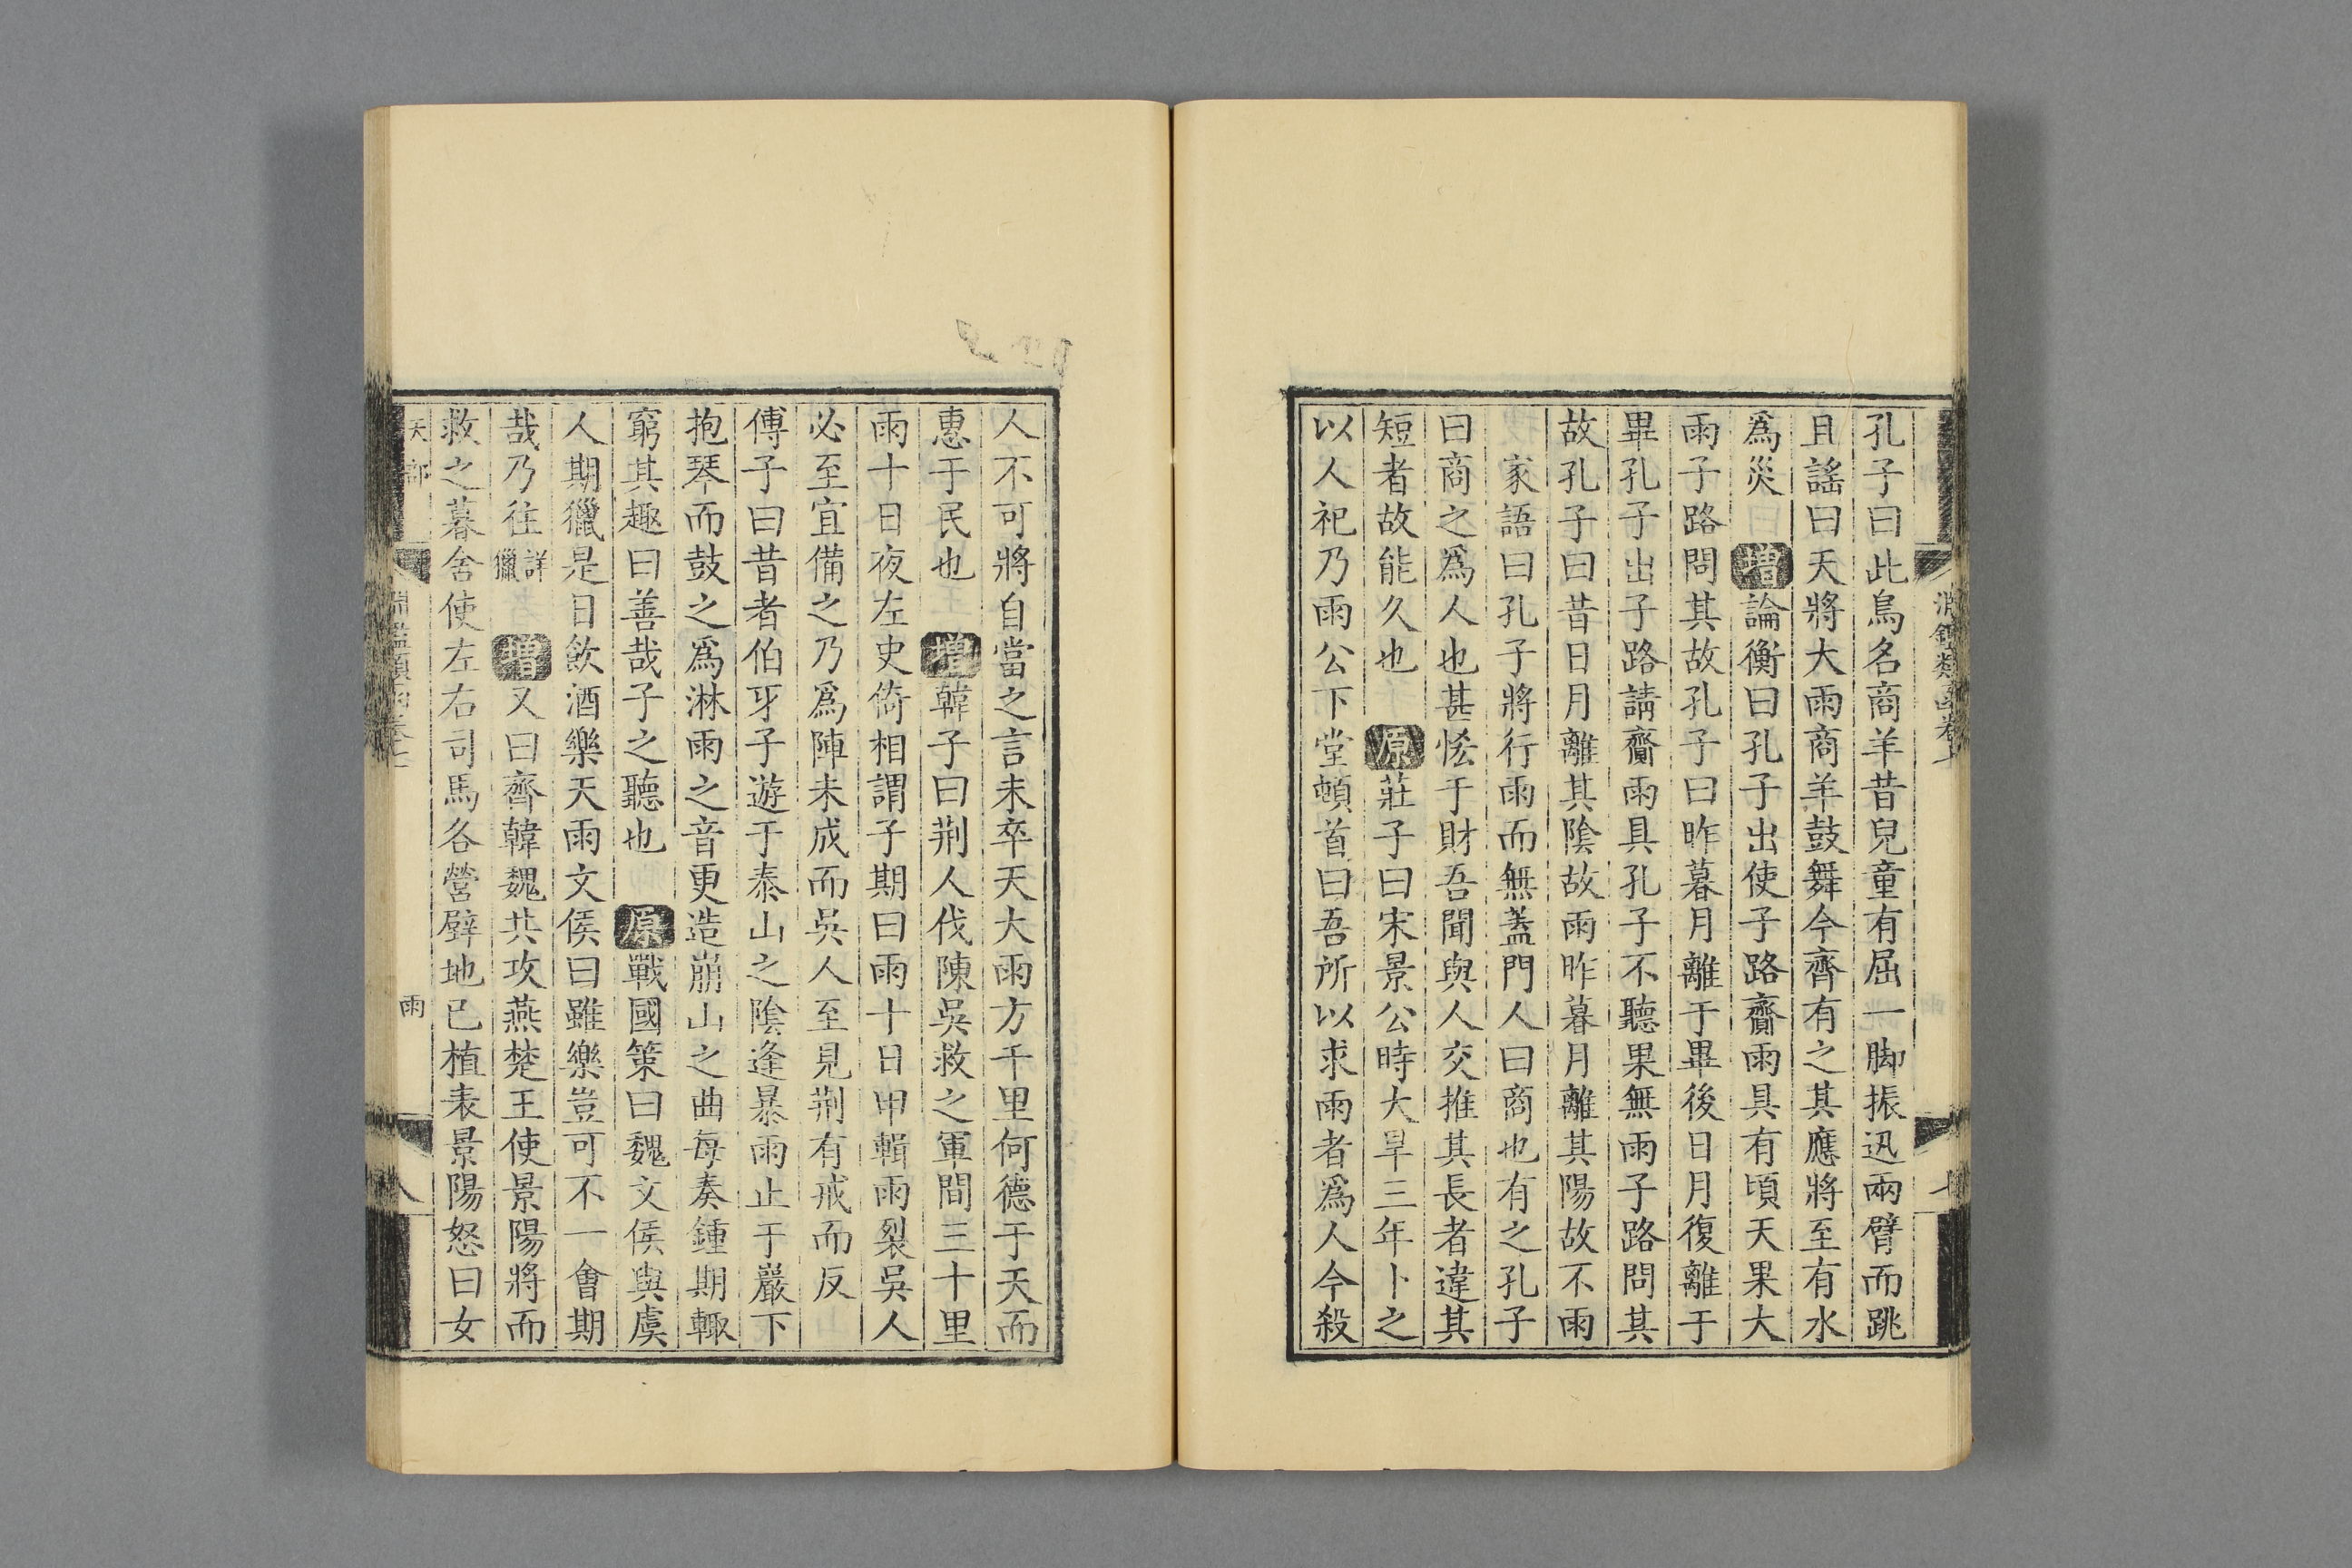 孔子曰此鳥名商羊昔兒童有屈一脚振迅兩臂而跳
且謠曰天將大雨商羊鼓舞今齊有之其應將至有水
爲災 增論衡曰孔子出使子路齎雨具有頃天果大
雨子路問其故孔子曰昨暮月離于畢後日月復離于
畢孔子出子路請齎雨具孔子不聽果無雨子路問其
故孔子曰昔日月離其陰故雨昨暮月離其陽故不雨
家語曰孔子將行雨而無蓋門人曰商也有之孔子
曰商之爲人也甚恡于財吾聞與人交推其長者違其
短者故能久也 原莊子曰宋景公時大旱三年卜之
以人祀乃雨公下堂頓首曰吾所以求雨者爲人今殺
人不可將自當之言未卒天大雨方千里何德于天而
惠于民也 增韓子曰荆人伐陳吳救之軍間三十里
雨十日夜左史倚相謂子期曰雨十日甲輯雨裂吳人
必至宜備之乃爲陣未成而吳人至見荆有戒而反
傅子曰昔者伯牙子遊于泰山之陰逢暴雨止于巖下
抱琴而鼓之爲淋雨之音更造崩山之曲每奏鍾期輙
窮其趣曰善哉子之聽也 原戰國策曰魏文侯與虞
人期獵是日飲酒樂天雨文侯曰雖樂豈可不一會期
哉乃往詳獵 增又曰齊韓魏共攻燕楚王使景陽將而
救之暮舍使左右司馬各營壁地已植表景陽怒曰女
天部
雨
八